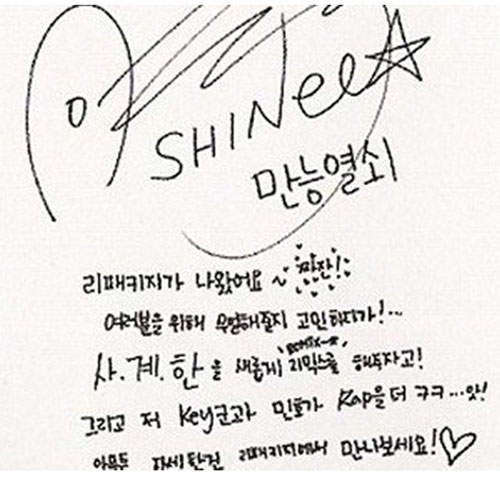 SHINee☆
만능열쇠
리패키지가 나왔어요~ 짜잔!
여러분을 위해 무얼해줄지 고민하다가!...
사.계.한을 새롭게 리믹스를 해두자고!
그리고 저 Key군과 민호가 Rap을 더 ㅋㅋ...앗!
아무튼 자세한건 리패키지에서 만나보세요!♡